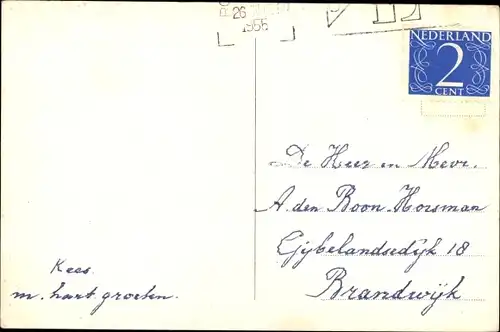 26
1955
NEDERLAND
2
CENT
De Heer en Mevr.
A den Boon-Horsman
Gijbelandsedijk 18
Brandwijk
Kees.
m. hart groeten.